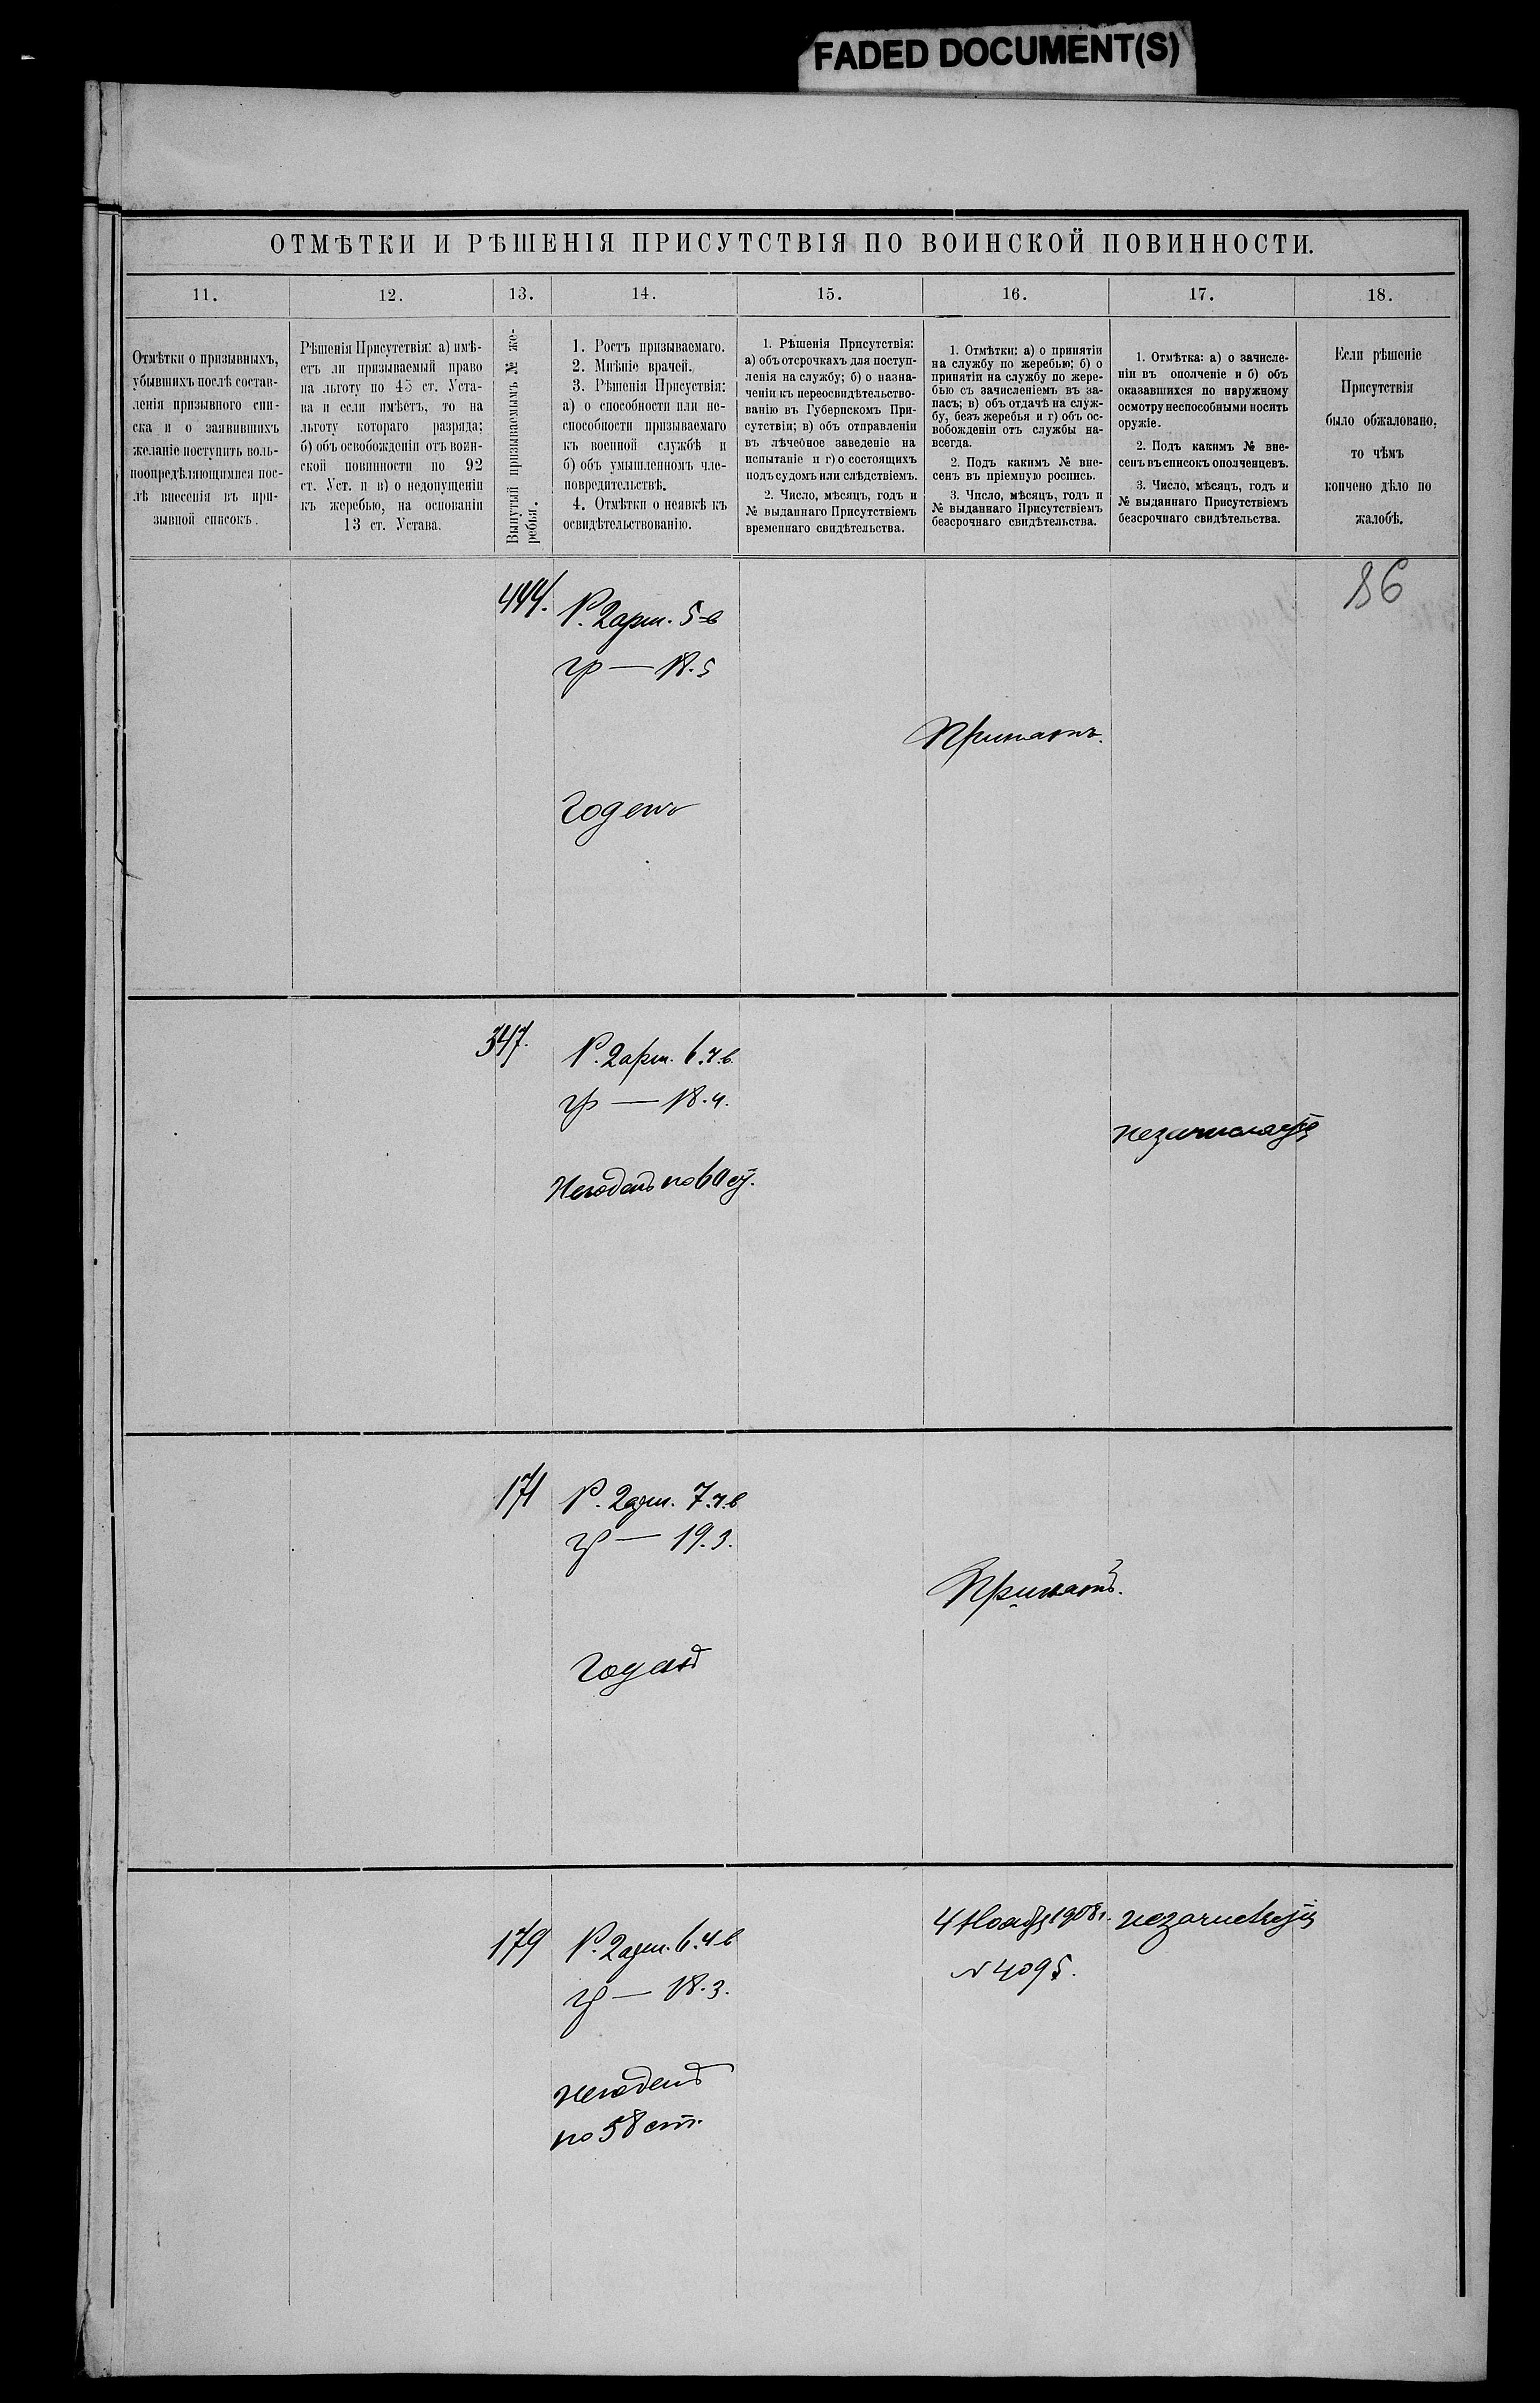 FADED DOCUMENT(S)
ОТМѢТКИ И РѢШЕНІЯ ПРИСУТСТВІЯ ПО ВОИНСКОЙ ПОВИННОСТИ.
11.
12.
13.
14.
15.
16.
17.
18.
Отмѣтки о призывныхъ,
убывшихъ послѣ состав-
ленія призывного спи-
ска и о заявившихъ
желаніе поступить воль-
ноопредѣляющимися пос-
лѣ внесенія въ при-
зывной списокъ.
Рѣшенія Присутствія: а) имѣ-
етъ ли призываемый право
на льготу по 45 ст. Уста-
ва и если имѣетъ, то на
льготу котораго разряда;
б) объ освобожденіи отъ воин-
ской повинности по 92
ст. Уст. и в) о недопущеніи
къ жеребью, на основаніи
13 ст. Устава.
Вынутый призываемымъ № же-
ребья.
1. Ростъ призываемаго.
2. Мнѣніе врачей.
3. Рѣшенія Присуствія:
а) о способности или не-
способности призываемаго
къ военной службѣ и
б) объ умышленномъ чле-
новредительствѣ.
4. Отмѣтки о неявкѣ къ
освидѣтельствованію.
1. Рѣшенія Присутствія:
а) объ отсрочкахъ для поступ-
ленія на службу; б) о назна-
ченіи къ переосвидѣтельство-
ванію въ Губернскомъ При-
сутствіи; в) объ отправленіи
въ лѣчебное заведеніе на
испытаніе и г) о состоящихъ
подъ судомъ или слѣдствіемъ.
2. Число, мѣсяцъ, годъ и
№ выданнаго Присутствіемъ
временнаго свидѣтельства.
1. Отмѣтки: а) о принятіи
на службу по жеребью; б) о
принятіи на службу по жере-
бью съ зачисленіемъ въ за-
пасъ; в) объ отдачѣ на служ-
бу, безъ жеребья и г) объ ос-
вобожденіи отъ службы на-
всегда.
2. Подъ какимъ № вне-
сенъ въ пріемную роспись.
3. Число, мѣсяцъ, годъ и
№ выданнаго Присутствіемъ
безсрочнаго свидѣтельства.
1. Отмѣтка: а) о зачисле-
ніи въ ополченіе и б) объ
оказавшихся по наружному
осмотру неспособными носить
оружіе.
2. Подъ какимъ № вне-
сенъ въ списокъ ополченцевъ.
3. Число, мѣсяцъ, годъ и
№ выданнаго Присутствіемъ
безсрочнаго свидѣтельства.
Если рѣшеніе
Присутствія
было обжаловано,
то чѣмъ
кончено дѣло по
жалобѣ.
86
444.
Р. 2 арш. 5 в
гр — 18.5
Принятъ.
Годенъ
347.
Р. 2 арш. 6.4 в.
гр — 18.4.
незачисляется
Негоденъ по 60 ст.
171
Р. 2 арш. 7.4 в
гр — 19.3.
Принятъ.
Годенъ
179
Р. 2 арш. 6.4 в
гр — 18.3.
4 Ноября 1908 г.
N 4095.
незачисляется
негоденъ
по 58 ст.